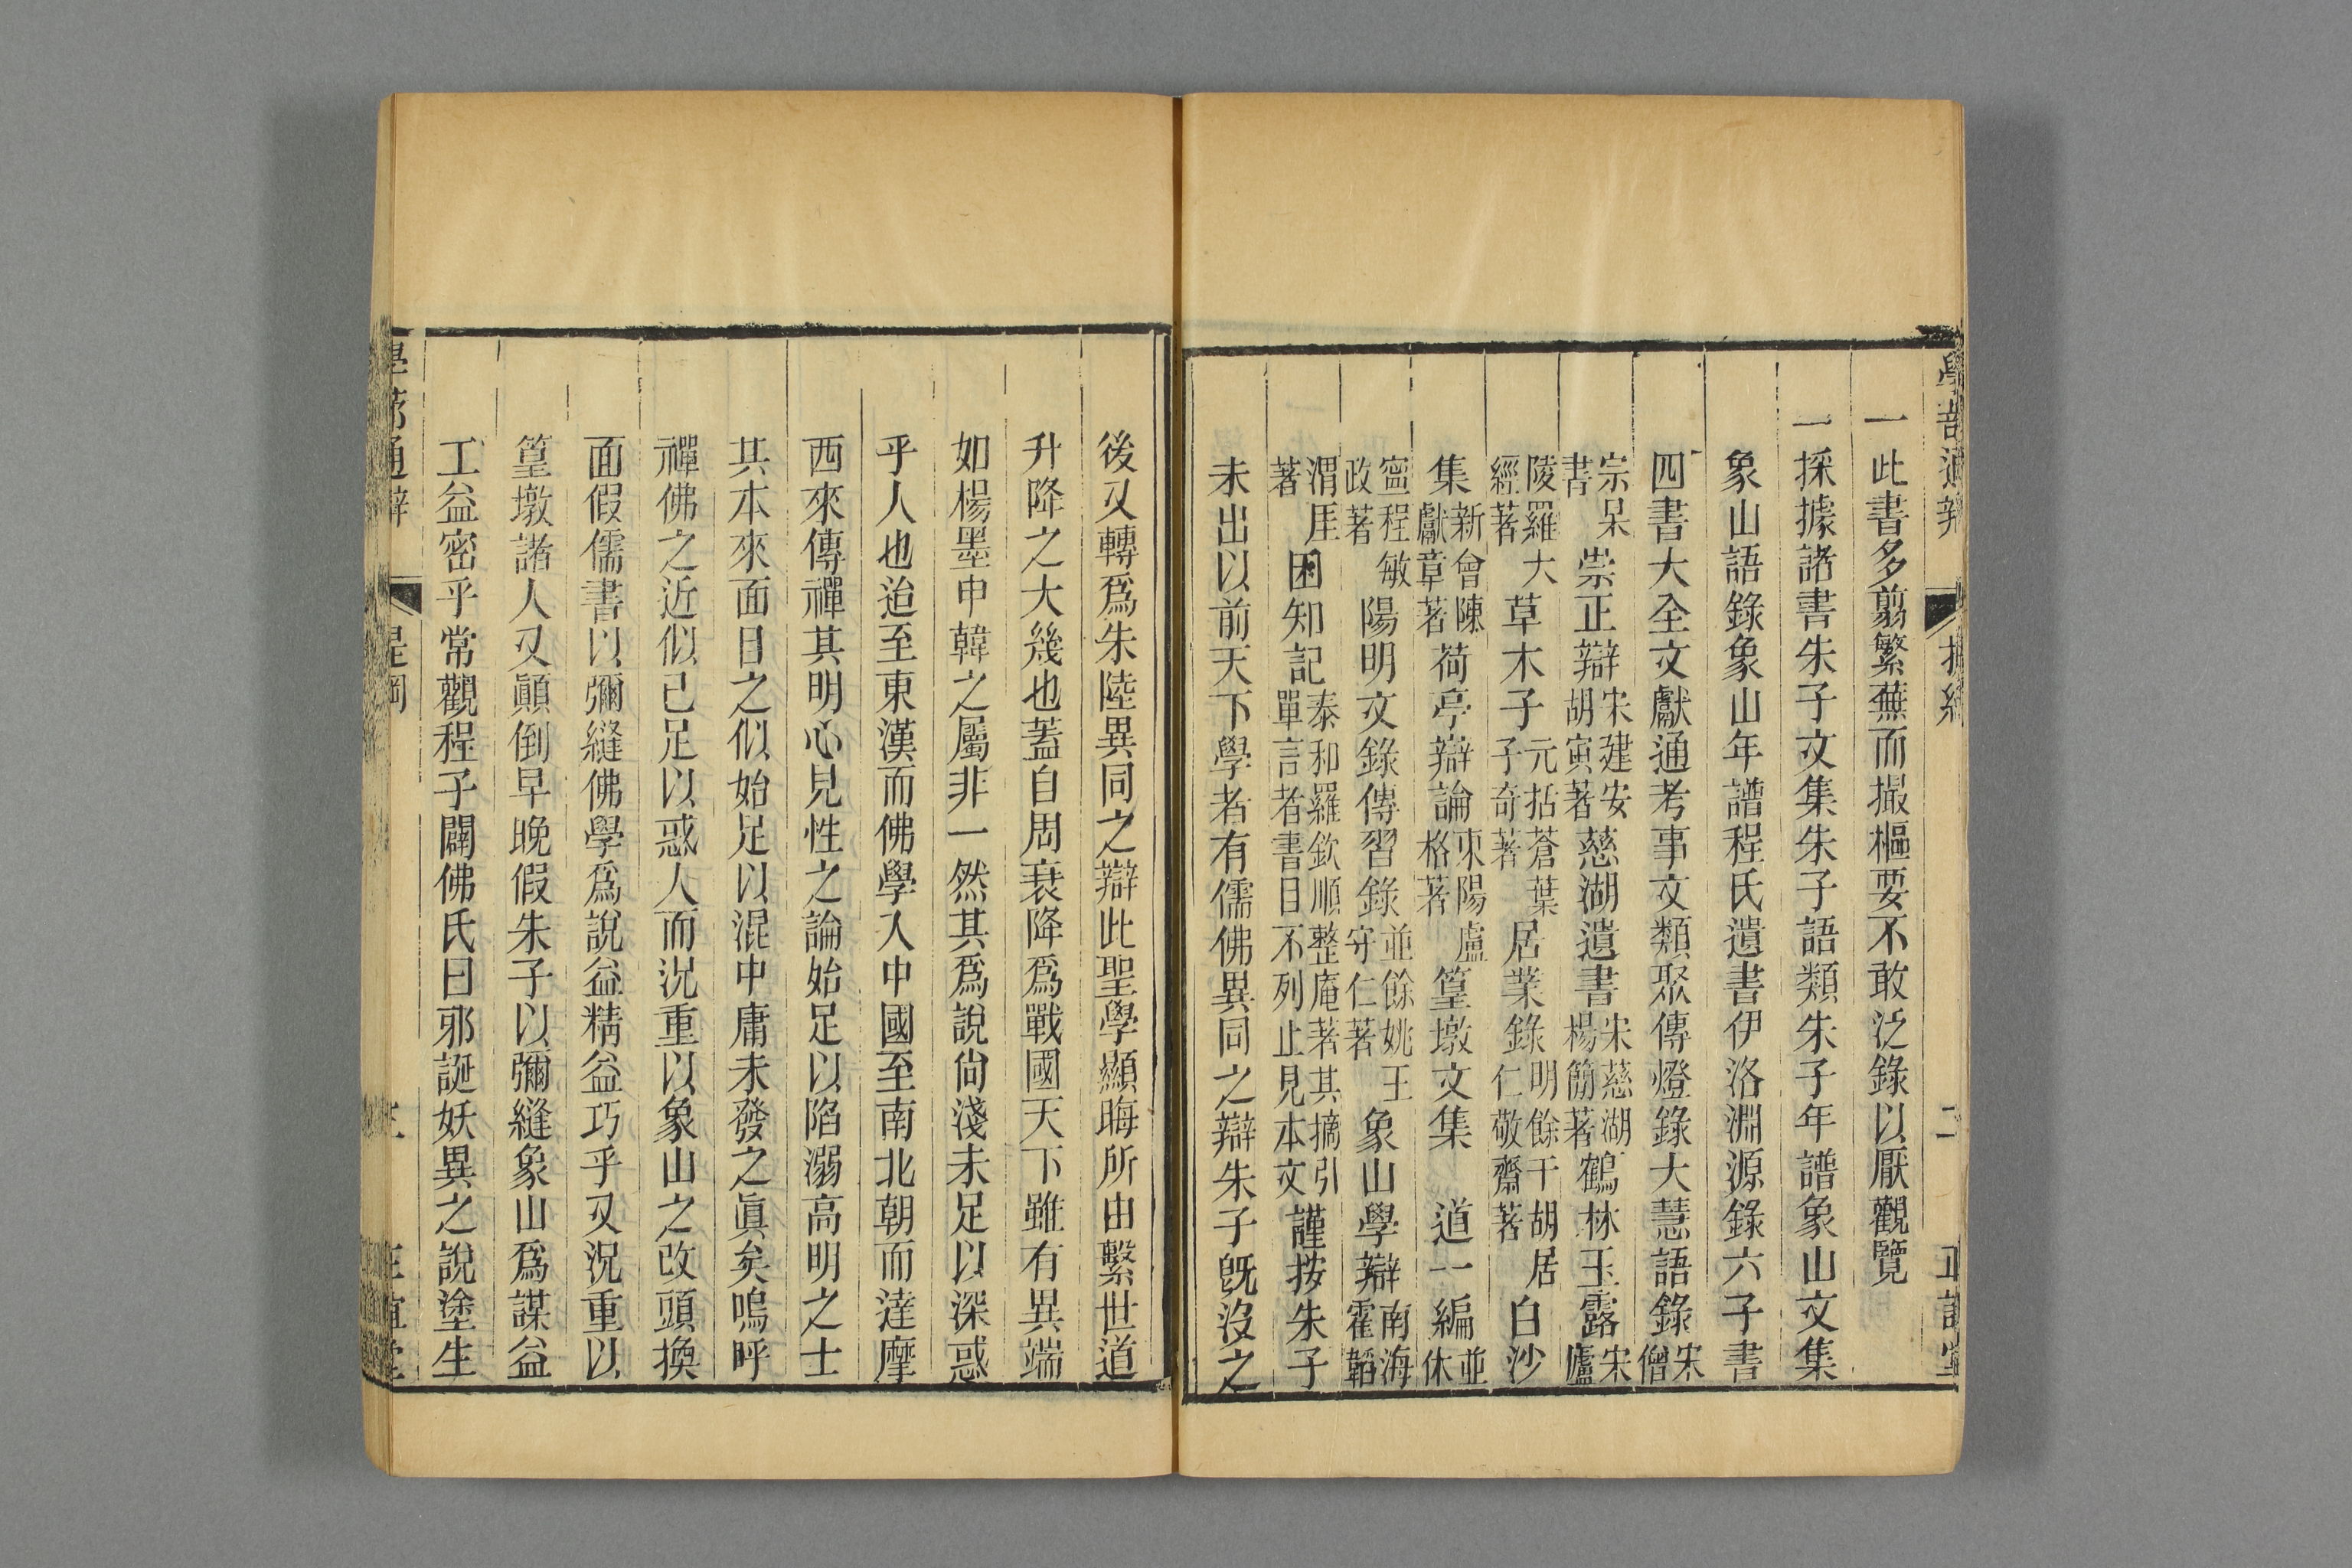 一此書多剪繁蕪而撮樞要不敢泛錄以厭觀覽
一採據諸書朱子文集朱子語類朱子年譜象山文集
象山語錄象山年譜程氏遺書伊洛淵源錄六子書
四書大全文獻通考事文類聚傳燈錄大慧語錄宋僧
宗杲書崇正辯宋建安胡寅著慈湖遺書宋慈湖楊簡著鶴林玉露宋廬
陵羅大經著草木子元括蒼葉子奇著居業錄明餘干胡居仁敬齋著白沙
集新會陳獻章著荷亭辯論東陽盧格著篁墩文集道一編並休
寧程敏政著陽明文錄傳習錄並餘姚王守仁著象山學辯南海霍韜
渭厓著困知記泰和羅欽順整庵著其摘引單言者書目不列止見本文謹按朱子
未出以前天下學者有儒佛異同之辯朱子既沒之
後又轉爲朱陸異同之辯此聖學顯晦所由繫世道
升降之大幾也蓋自周衰降爲戰國天下雖有異端
如楊墨申韓之屬非一然其爲說尙淺未足以深惑
乎人也迨至東漢而佛學入中國至南北朝而達摩
西來傳禪其明心見性之論始足以陷溺高明之士
其本來面目之似始足以混中庸未發之眞矣嗚呼
禪佛之近似已足以惑人而況重以象山之改頭換
面假儒書以彌縫佛學爲說益精益巧乎又況重以
篁墩諸人又顚倒早晚假朱子以彌縫象山爲謀益
工益密乎常觀程子闢佛氏曰邪誕妖異之說塗生